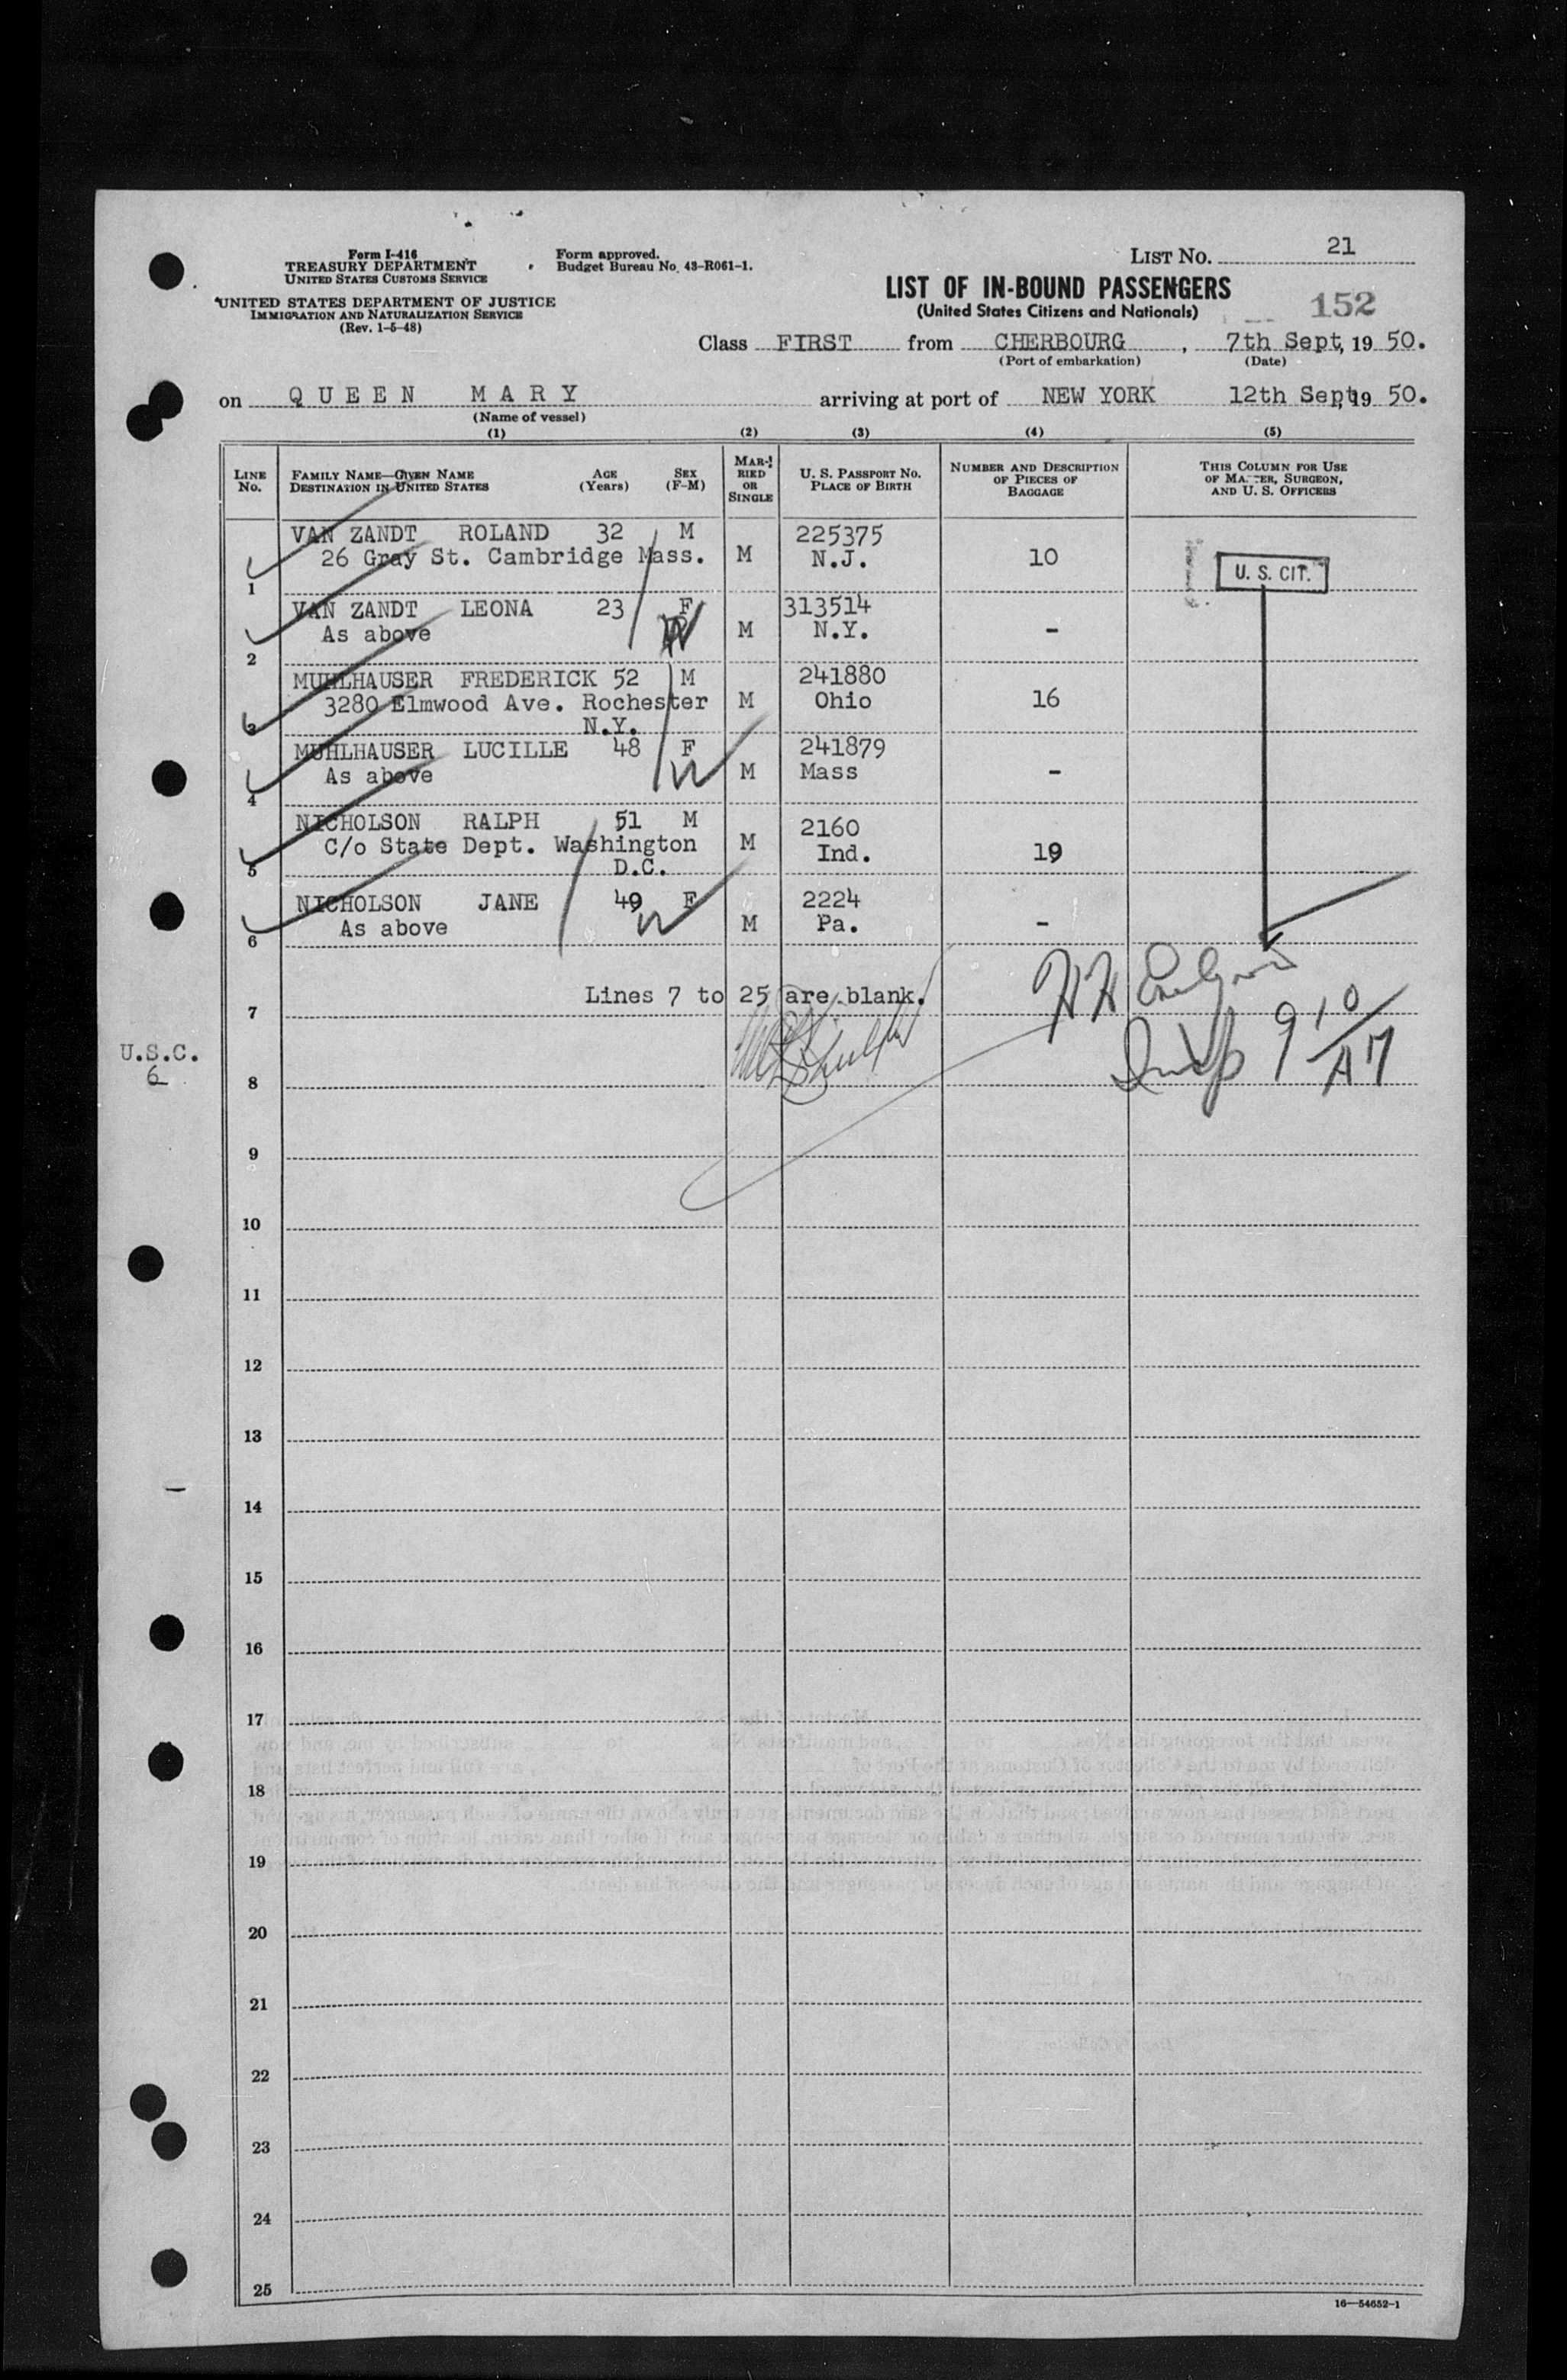 Form I-416
TREASURY DEPARTMENT
UNITED STATES CUSTOMS SERVICE
UNITED STATES DEPARTMENT OF JUSTICE
IMMIGRATION AND NATURALIZATION SERVICE
(Rev. 1-5-48)
Form approved.
Budget Bureau No. 43-R061-1.
LIST NO. 21
LIST OF IN-BOUND PASSENGERS
(United States Citizens and Nationals)
152
Class FIRST from CHERBOURG, 7th Sept, 19 50.
(Port of embarkation) (Date)
on QUEEN MARY arriving at port of NEW YORK 12th Sept, 19 50.
(Name of vessel)
(1) (2) (3) (4) (5)
LINE NO.
FAMILY NAME—GIVEN NAME AGE SEX
DESTINATION IN UNITED STATES (Years) (F-M)
MARRIED OR SINGLE
U. S. PASSPORT NO.
PLACE OF BIRTH
NUMBER AND DESCRIPTION
OF PIECES OF
BAGGAGE
THIS COLUMN FOR USE
OF MASTER, SURGEON,
AND U. S. OFFICERS
VAN ZANDT ROLAND 32 M 225375
26 Gray St. Cambridge Mass. M N.J. 10
1
U. S. CIT.
VAN ZANDT LEONA 23 F 313514
As above M N.Y. -
2
MUHLHAUSER FREDERICK 52 M 241880
3280 Elmwood Ave. Rochester M Ohio 16
N.Y.
3
MUHLHAUSER LUCILLE 48 F 241879
As above M Mass -
4
NICHOLSON RALPH 51 M 2160
C/o State Dept. Washington M Ind. 19
D.C.
5
NICHOLSON JANE 49 F 2224
As above M Pa. -
6
Lines 7 to 25 are blank.
7
U.S.C.
6
8
9
10
11
12
13
14
15
16
17
18
19
20
21
22
23
24
25
16—54652-1